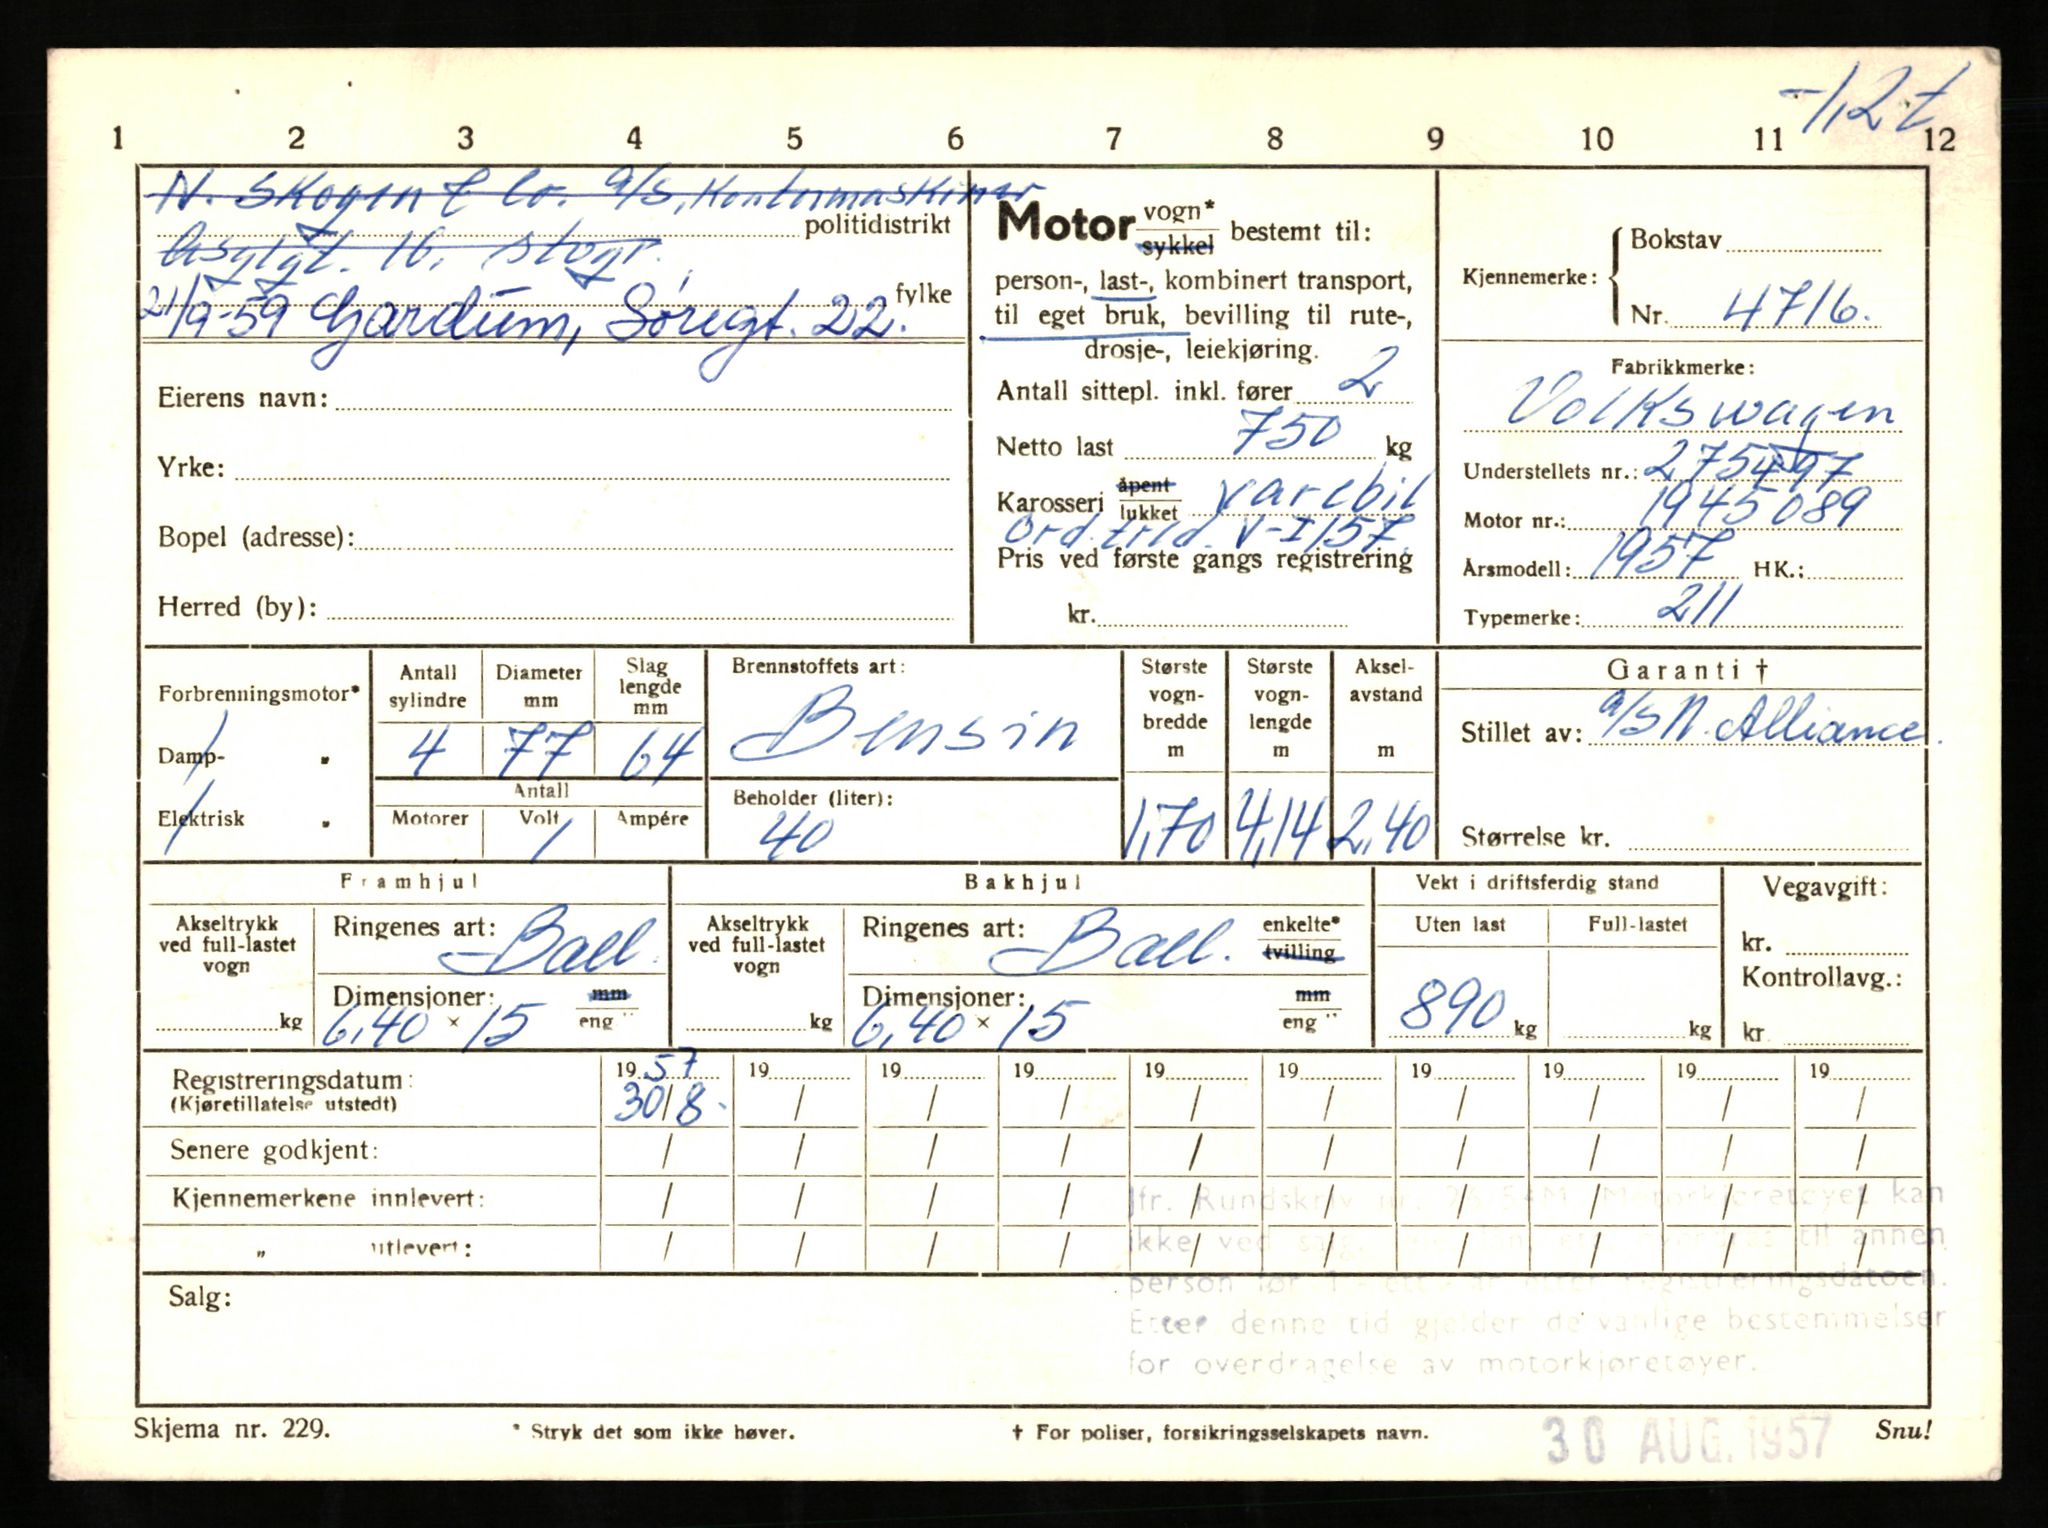 -1,2 t
1 2 3 4 5 6 7 8 9 10 11 12
N. Skogen & Co. a/s, Kontormaskiner
politidistrikt
16, Stvgr.
fylke
21/9-59 Gardum, Søregt. 22.
Eierens navn:
Yrke:
Bopel (adresse):
Herred (by):
Motor vogn* sykkel bestemt til:
person-, last-, kombinert transport,
til eget bruk, bevilling til rute-,
drosje-, leiekjøring.
Antall sittepl. inkl. fører 2
Netto last 750 kg
Karosseri åpent lukket varebil
Ord. V-I/57.
Pris ved første gangs registrering
kr.
Kjennemerke: Bokstav
Nr. 4716.
Fabrikkmerke:
Volkswagen
Understellets nr.: 275497
Motor nr.: 1945089
Årsmodell: 1957 HK.:
Typemerke: 211
Forbrenningsmotor*
Damp- "
Elektrisk "
Antall sylindre
Diameter mm
Slag lengde mm
4 77 64
Antall
Motorer Volt Ampére
Brennstoffets art:
Bensin
Beholder (liter):
40
Største vogn-bredde m
1,70
Største vogn-lengde m
4,14
Aksel-avstand m
2,40
Garanti †
Stillet av: a/s N. Alliance.
Størrelse kr.
Framhjul
Akseltrykk ved full-lastet vogn
kg
Ringenes art: Ball.
Dimensjoner: mm
6,40 × 15 eng "
Bakhjul
Akseltrykk ved full-lastet vogn
kg
Ringenes art: Ball. enkelte* tvilling
Dimensjoner: mm
6,40 × 15 eng "
Vekt i driftsferdig stand
Uten last Full-lastet
890 kg kg
Vegavgift:
kr.
Kontrollavg.:
kr.
Registreringsdatum: 19 57 19 19 19 19 19 19 19 19 19
(Kjøretillatelse utstedt) 30/8. / / / / / / / / /
Senere godkjent: / / / / / / / / / /
Kjennemerkene innlevert: / / / / / / / / / /
" utlevert: / / / / / / / / / /
Jfr. Rundskriv nr. Motorkjøretøyet kan
ikke ved salg, til annen
person før 1 - ett - år etter registreringsdatoen.
Etter denne tid gjelder de vanlige bestemmelser
for overdragelse av motorkjøretøyer.
Salg:
Skjema nr. 229.
* Stryk det som ikke høver.
† For poliser, forsikringsselskapets navn.
30 AUG. 1957
Snu!